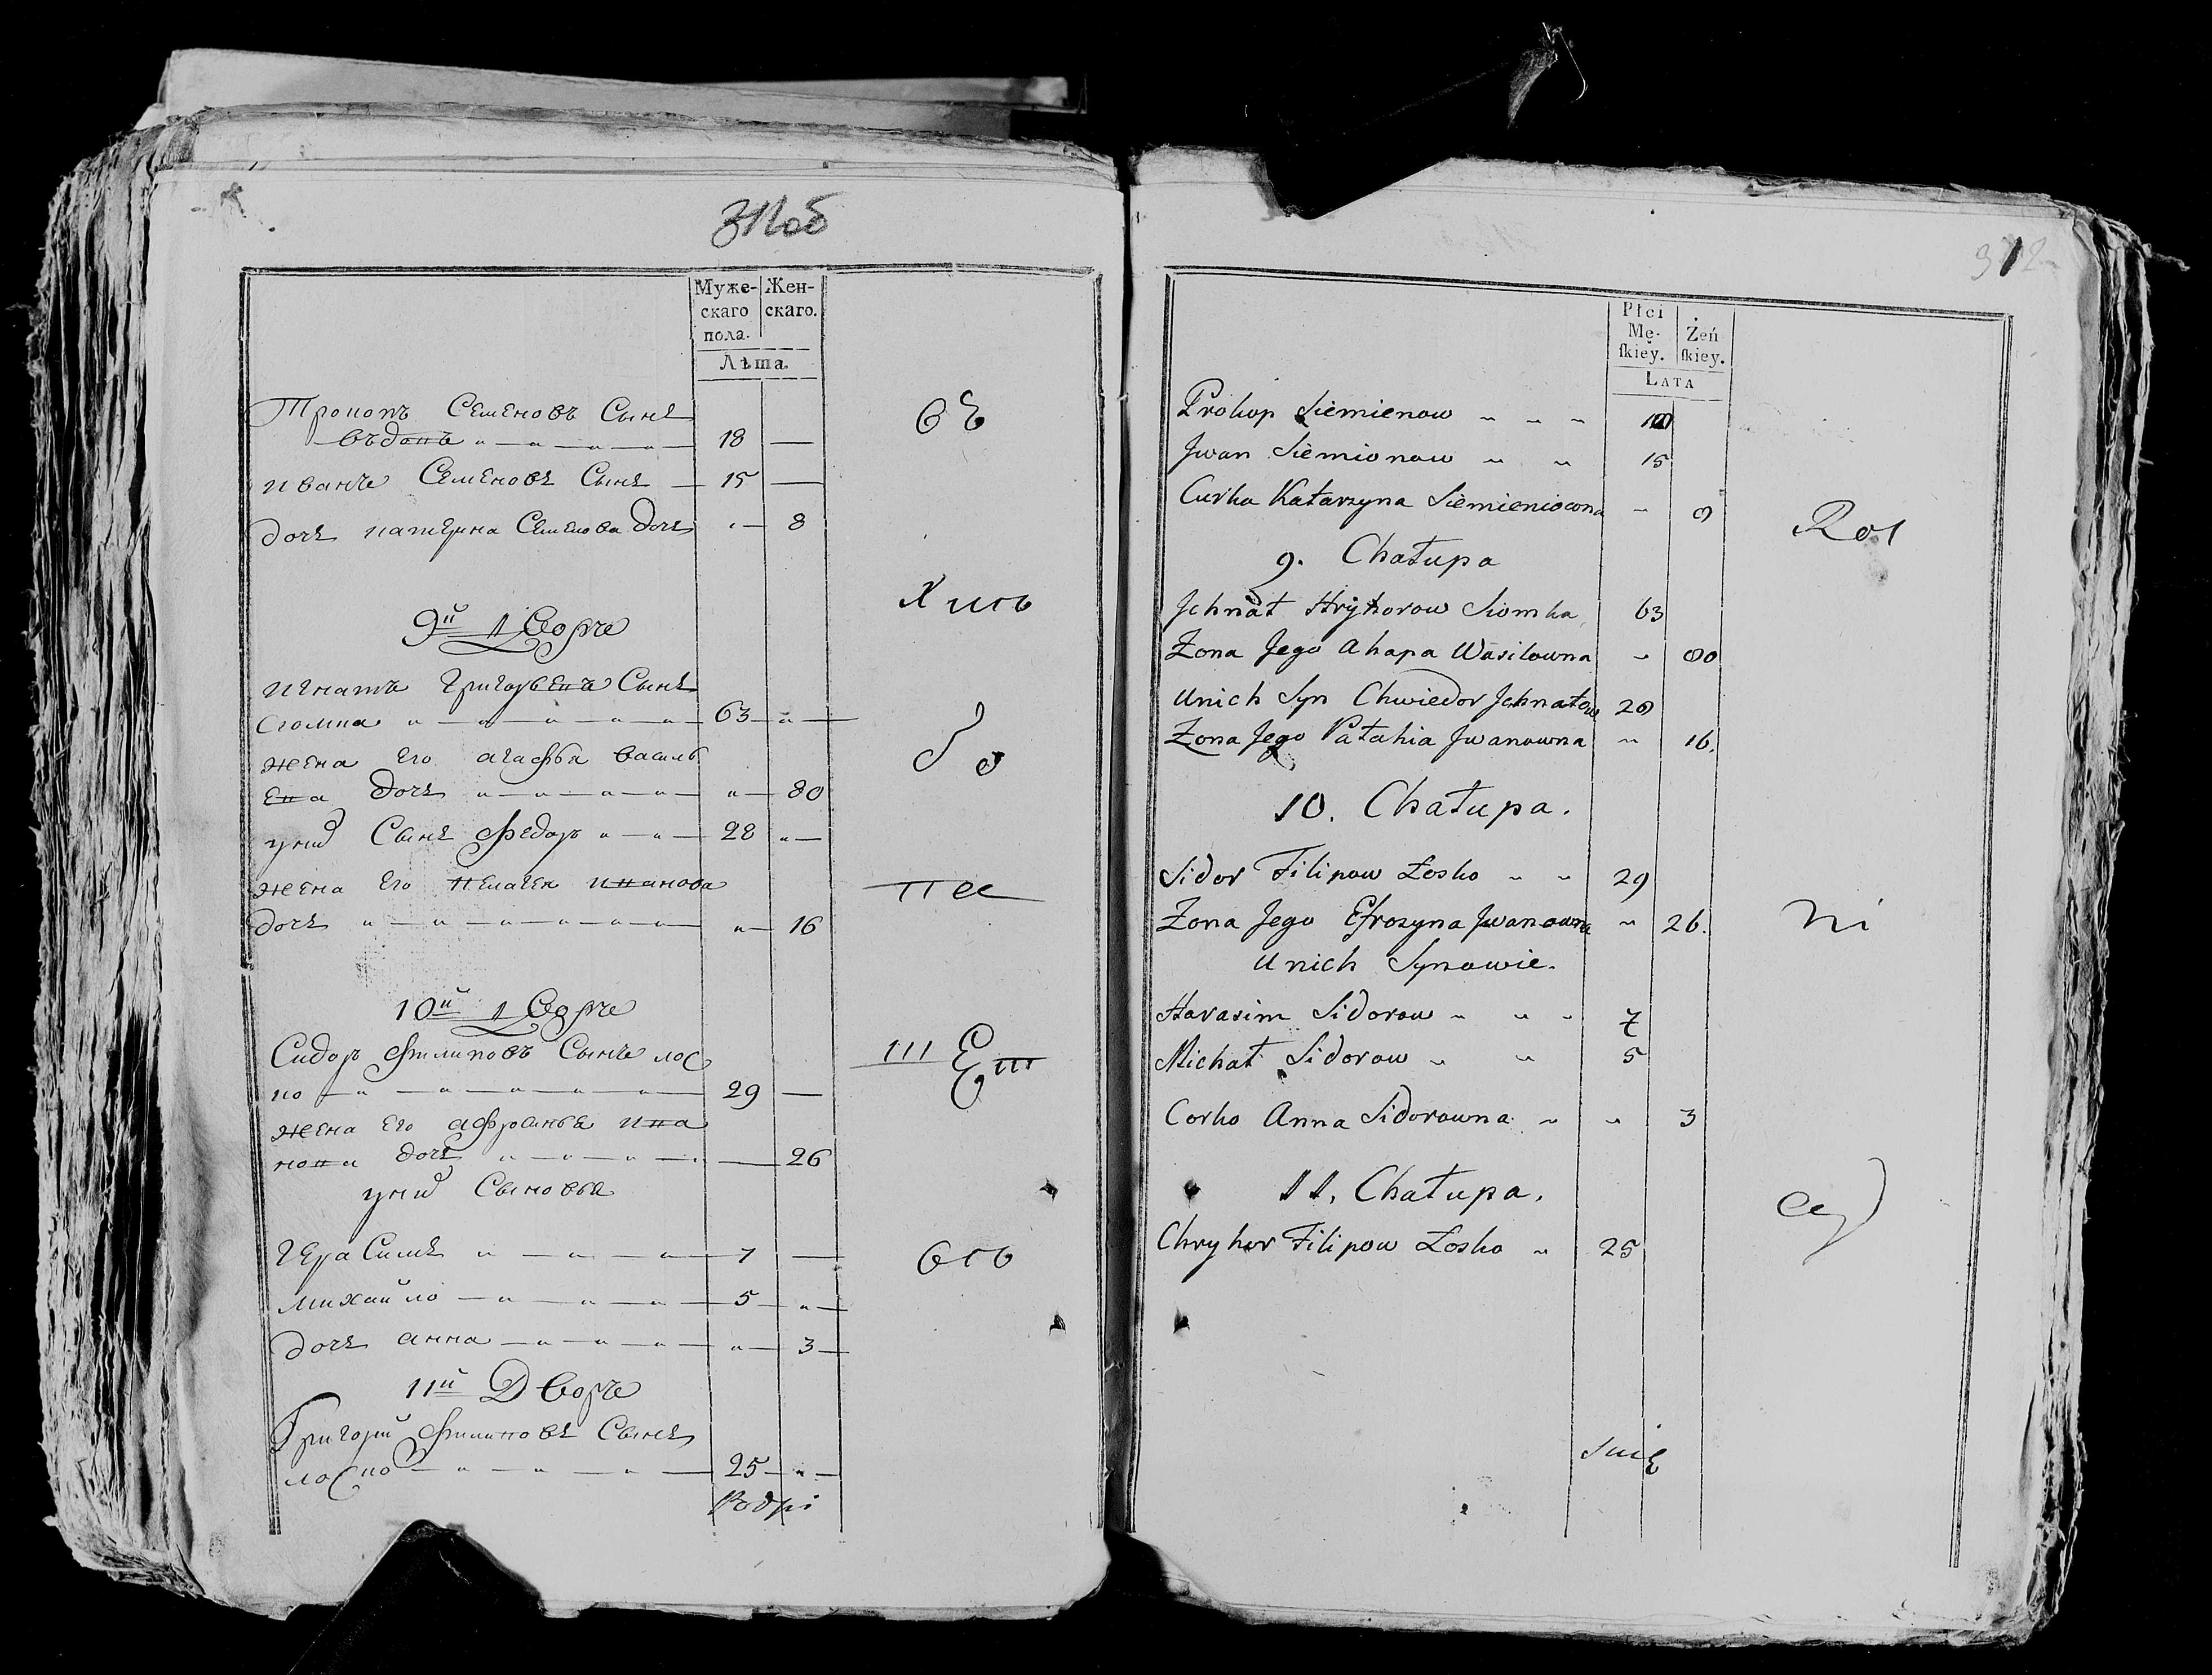 311 об
Муже-
скаго
пола.
Жен-
скаго.
Лѣта.
Прокопъ Семеновъ Сынъ
въдовъ 18 —
иванъ Семеновъ Сынъ — 15 —
дочь катерина Семенова дочь „ — 8
9й Дворъ
игнатъ григорьевъ Сынъ
сюмка 63 — „ —
жена его агафья василь
ева дочь „ — 80
унихъ Сынъ Федоръ 28 „ —
жена его пелагея иванова
дочь „ — 16
10й Дворъ
Сидоръ филиповъ Сынъ лос
ко 29 —
жена его афросинья ива
нова дочь — 26
унихъ Сыновья
гераСимъ 7 —
михайло 5 — „ —
дочь анна „ — 3 —
11й Дворъ
Григорий филиповъ Сынъ
лоско 25 — „ —
въ
хись
до
пе
бсь
312
Płci
Mę-
skiey.
Żeń
skiey.
LATA
Prokop Siemienow
Jwan Siemionow 15
Curka Katarzyna Siemieniowna – 8
9. Chałupa
Jchnat Hryhorow Siomka 63
Zona Jego Ahapa Wasilowna 80
Unich Syn Chwiedor Jchnatow 28
Zona Jego Pałahia Jwanowna 16.
10. Chałupa.
Sidor Filipow Łosko 29
Zona Jego Efrozyna Jwanowna 26.
Unich Synowie.
Harasim Sidorow 7
Michał Sidorow 5
Corko Anna Sidorowna 3
11. Chałupa.
Chryhor Filipow Łosko 25
Ros
ni